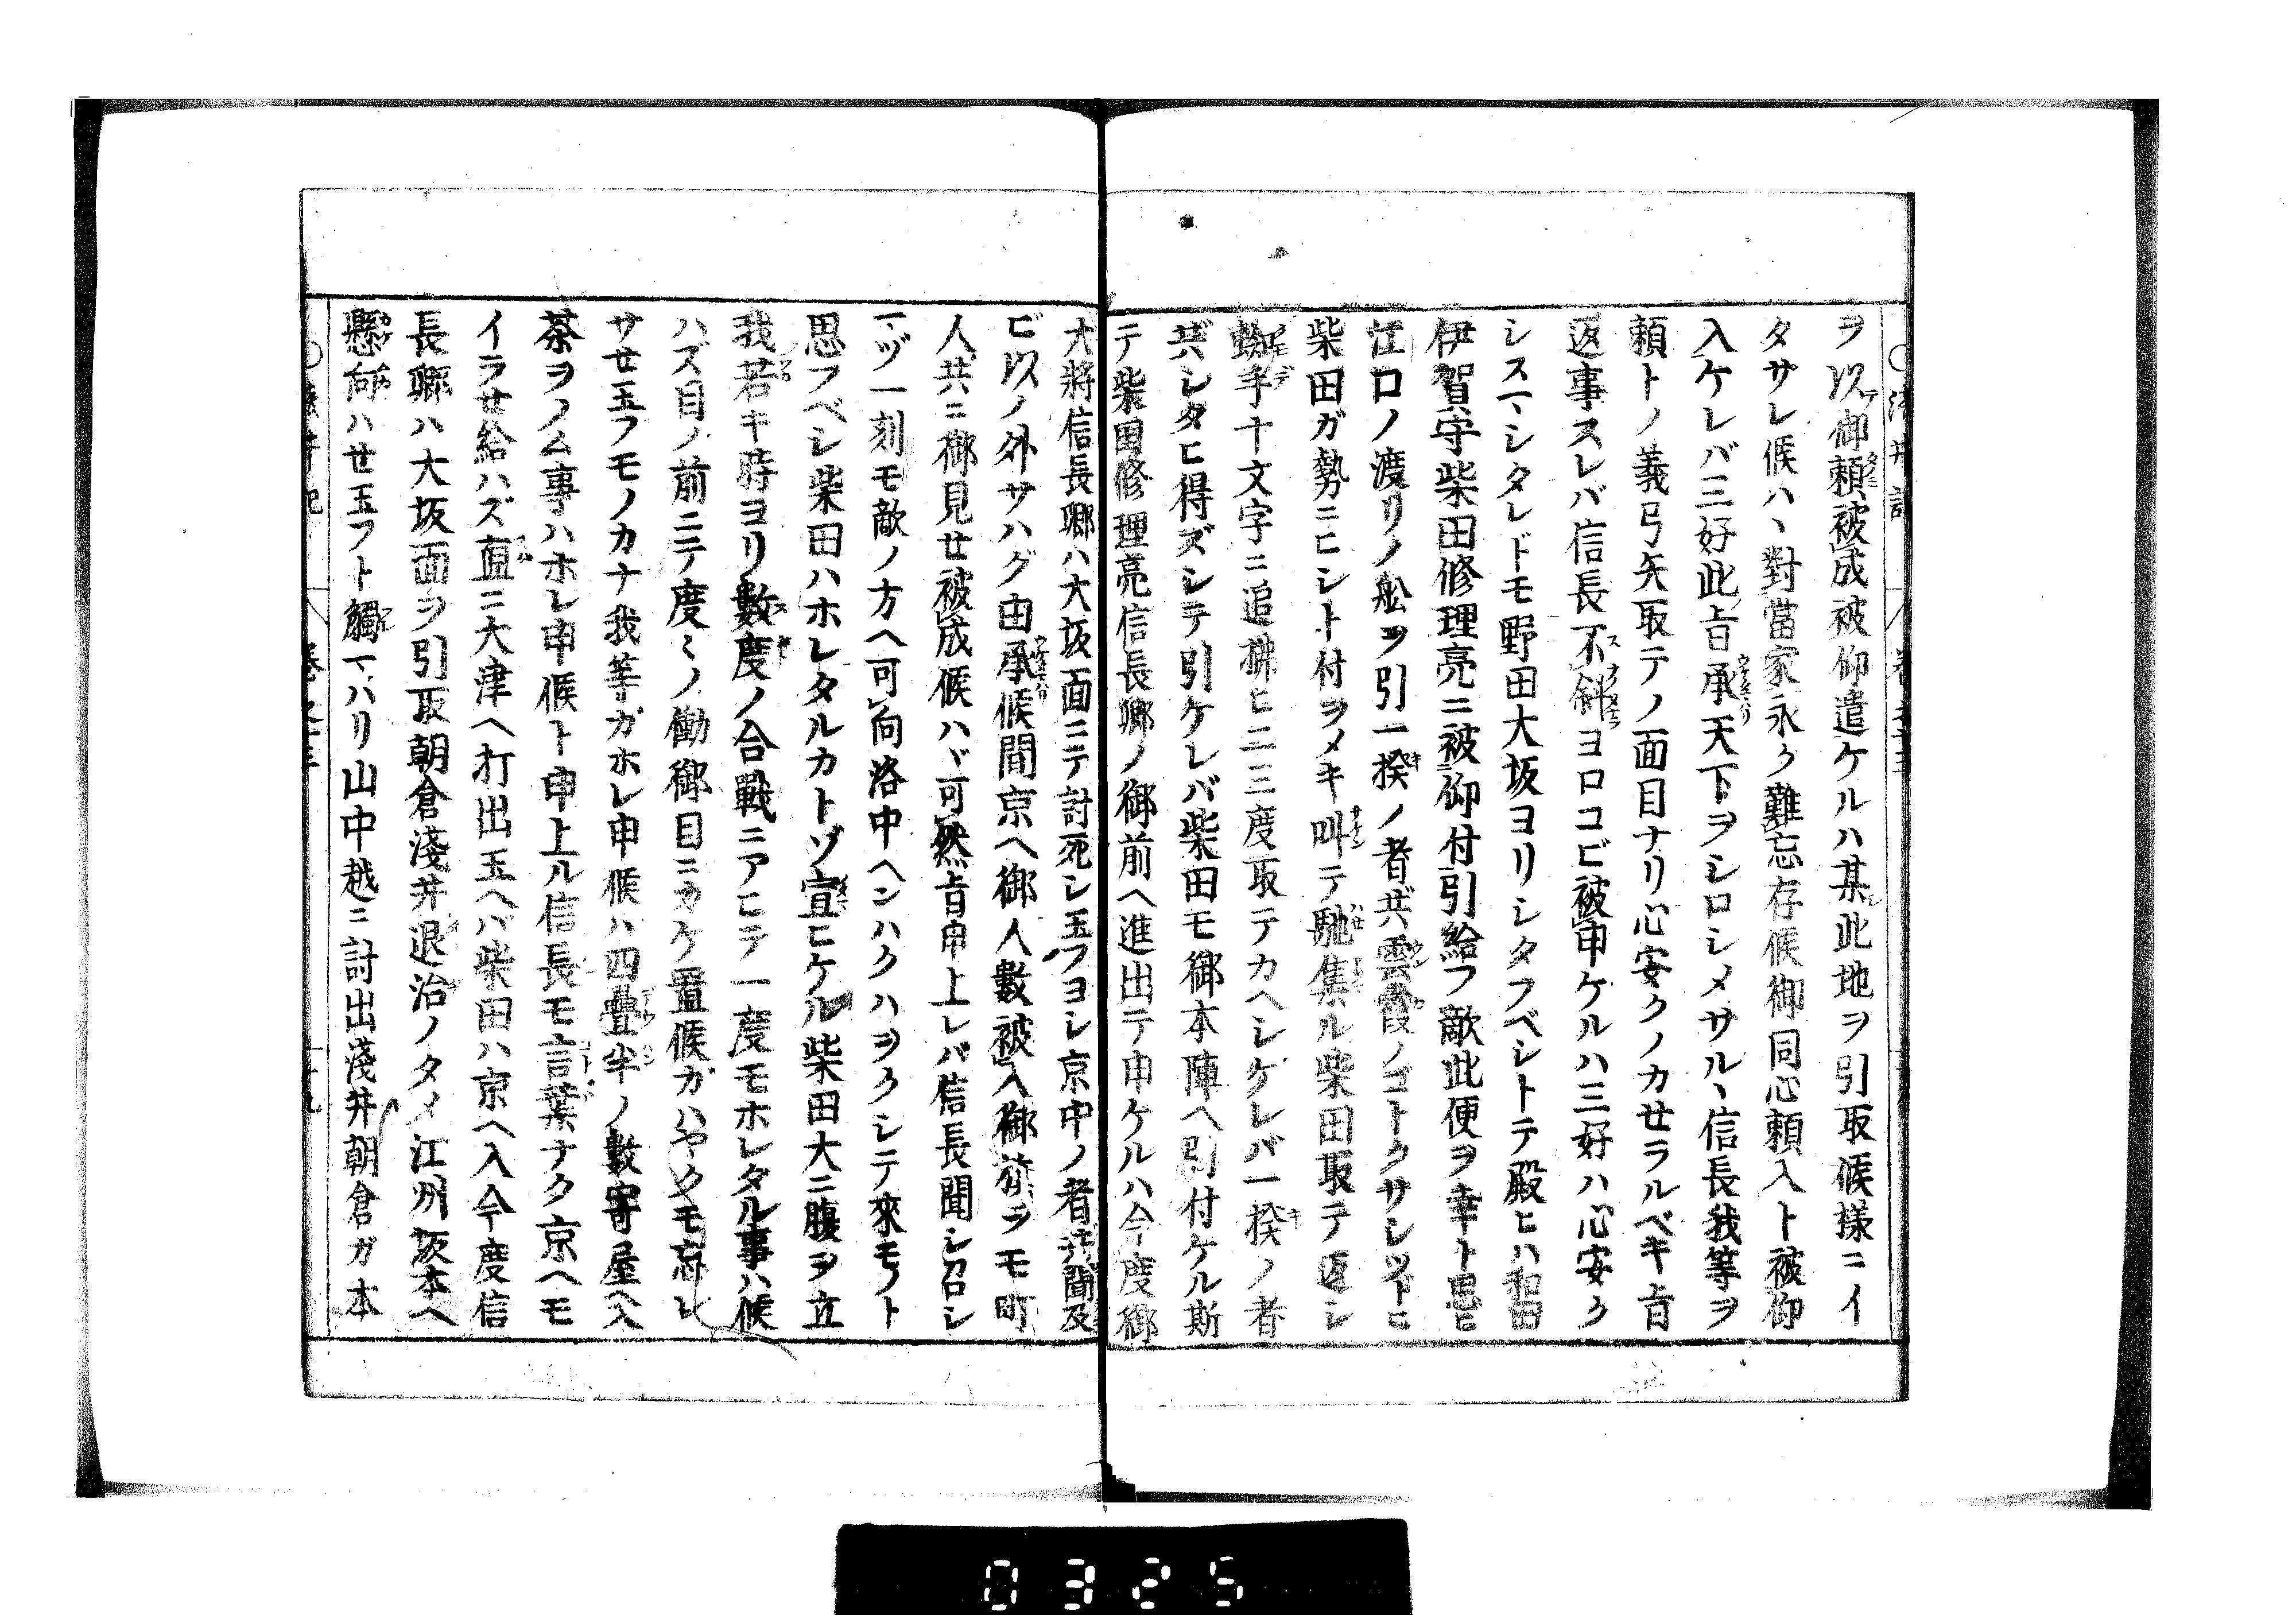 ヲ以御頼被成被仰遣ケルハ某此地ヲ引取候様ニイ
タサレ候ハヽ對當家永ク難忘存候御同心頼入ト被仰
入ケレバ三好此旨承天下ヲシロシメサルヽ信長我等ヲ
頼トノ義弓矢取テノ面目ナリ心安クノカせラルベキ旨
返事スレバ信長不斜ヨロコビ被申ケルハ三好ハ心安ク
シスマシタレドモ野田大坂ヨリシタフベシトテ殿ヒハ和田
伊賀守柴田修理亮ニ被仰付引給フ敵此便ヲ幸ト思ヒ
江口ノ渡リノ舩ヲ引一揆ノ者共雲霞ノゴトクサシツドヒ
柴田ガ勢ニヒシト付ヲメキ叫テ馳集ル柴田取テ返シ
蜘手十文字ニ追拂ヒ二三度取テカヘシケレバ一揆ノ者
共シタヒ得ズシテ引ケレバ柴田モ御本陣ヘ引付ケル斯
テ柴田修理亮信長卿ノ御前ヘ進出テ申ケルハ今度御
大將信長卿ハ大坂面ニテ討死シ玉フヨシ京中ノ者共聞及
ビ以ノ外サハグ由承候間京ヘ御人數被入御旗ヲモ町
人共ニ御見せ被成候ハヾ可然旨申上レバ信長聞シ召シ
マヅ一刻モ敵ノ方ヘ可向洛中ヘンハクハヲクシテ來モノト
思フベシ柴田ハホレタルカトゾ宣ヒケル柴田大ニ腹ヲ立
我若キ時ヨリ數度ノ合戰ニアヒテ一度モホレタル事ハ候
ハズ目ノ前ニテ度々ノ働御目ニカケ置候ガハヤクモ忘レ
サせ玉フモノカナ我等ガホレ申候ハ四疊半ノ數寄屋ヘ入
茶ヲノム事ハホレ申候ト申上ル信長モ言葉ナク京ヘモ
イラせ給ハズ直ニ大津ヘ打出玉ヘバ柴田ハ京ヘ入今度信
長卿ハ大坂面ヲ引取朝倉淺井退治ノタメ江州坂本ヘ
懸向ハせ玉フト觸マハリ山中越ニ討出淺井朝倉ガ本
0325